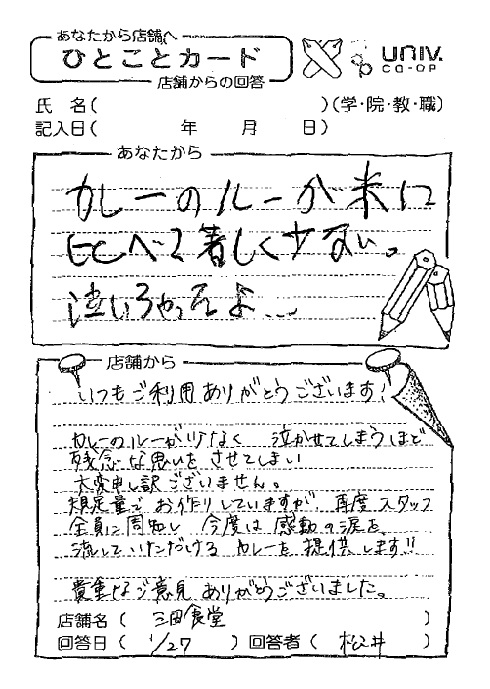 あなたから店舗へ
ひとことカード
店舗からの回答
UNIV.
CO-OP
氏 名( )(学・院・教・職)
記入日( 年 月 日)
あなたから
カレーのルーが米に
比べて著しく少ない。
泣いちゃったよ...
店舗から
いつもご利用ありがとうございます!
カレーのルーが少なく 泣かせてしまうほど
残念な思いをさせてしまい
大変申し訳ございません。
規定量でお作りしていますが、再度スタッフ
全員に周知し 今度は感動の涙を
流していただける カレーを提供します!!
貴重なご意見ありがとうございました。
店舗名( 三田食堂 )
回答日( 1/27 )回答者( 松井 )